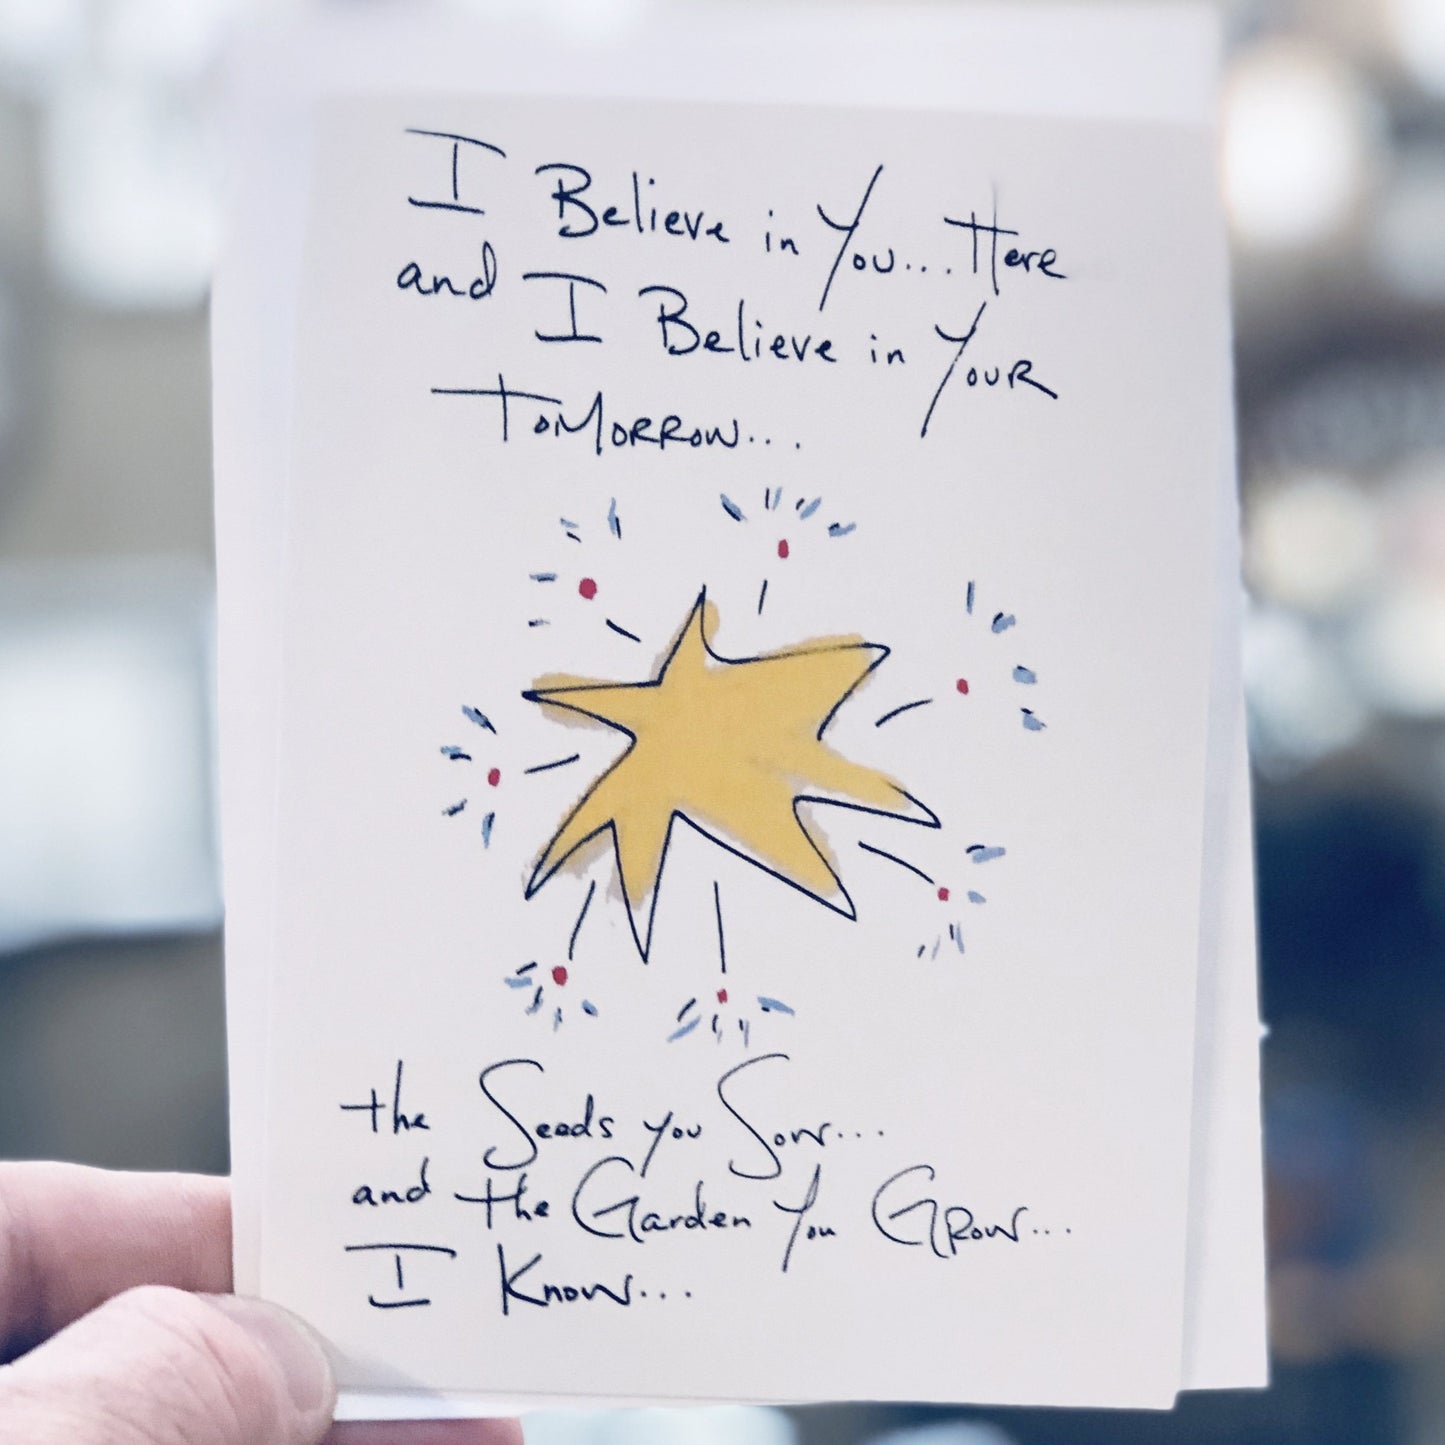 I Believe in You... Here
and I Believe in Your
Tomorrow...
the Seeds you Sow...
and the Garden You Grow...
I Know...